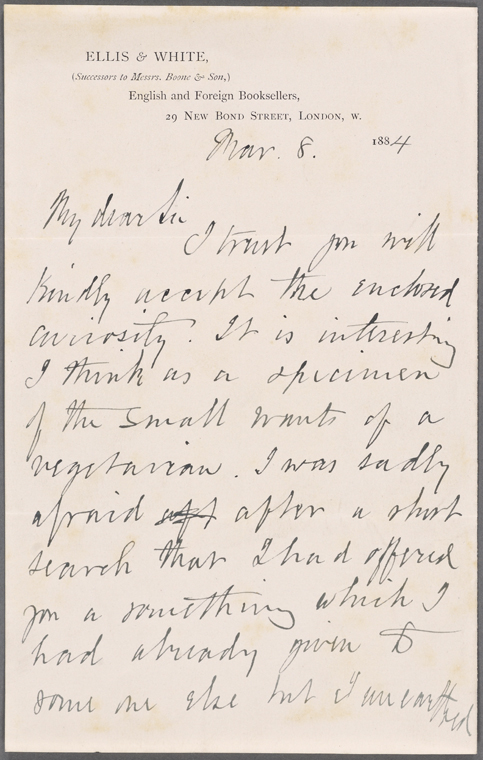 ELLIS & WHITE,
(Successors to Messrs. Boone & Son,)
English and Foreign Booksellers,
29 New Bond Street, London, W.
Mar. 8. 1884
My dear Sir
I trust you will
kindly accept the enclosed
curiosity. It is interesting
I think as a specimen
of the small wants of a
vegetarian. I was sadly
afraid aft after a short
search that I had offered
you a something which I
had already given to
some one else but I unearthed